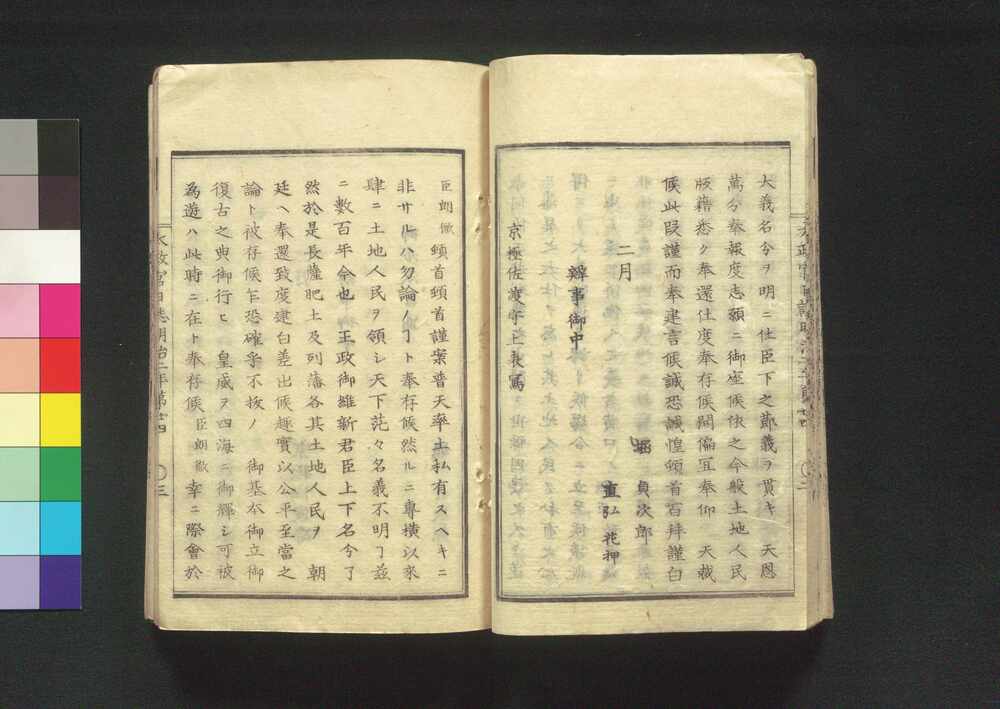 大義名分ヲ明ニ仕臣下之節義ヲ貫キ　天恩
萬分奉報度志願ニ御座候依之今般土地人民
版籍悉ク奉還仕度奉存候間偏冝奉仰　天裁
候此段謹而奉建言候誠恐誠惶頓首百拜謹白
二月　堀　貞次郎
直弘　花押
辨事御中
京極佐渡守上表寫
臣朗徹頓首頓首謹案普天率土私有スヘキニ
非サルハ勿論ノヿト奉存候然ルニ専横以來
肆ニ土地人民ヲ領シ天下茫々名義不明丁茲
ニ數百年今也　王政御維新君臣上下名分了
然於是長薩肥土及列藩各其土地人民ヲ　朝
廷ヘ奉還致度建白差出候趣實以公平至當之
論ト被存候乍恐確乎不拔ノ　御基本御立御
復古之典御行ヒ　皇威ヲ四海ニ御輝シ可被
為遊ハ此時ニ在ト奉存候臣朗徹幸ニ際會於
太政官日誌明治二年第廿四　三